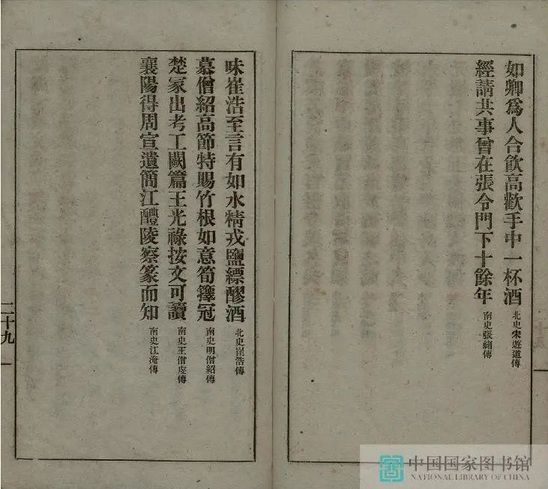 如卿為人合飲高歡手中一杯酒 北史宋遊道傳
經請共事曾在張令門下十餘年 南史張纘傳
味崔浩至言有如水精戎鹽縹醪酒 北史崔浩傳
慕僧紹高節特賜竹根如意筍籜冠 南史明僧紹傳
楚冢出考工闕篇王光祿按文可讀 南史王僧虔傳
襄陽得周宣遺簡江醴陵察篆而知 南史江淹傳
二十九
中国国家图书馆
NATIONAL LIBRARY OF CHINA